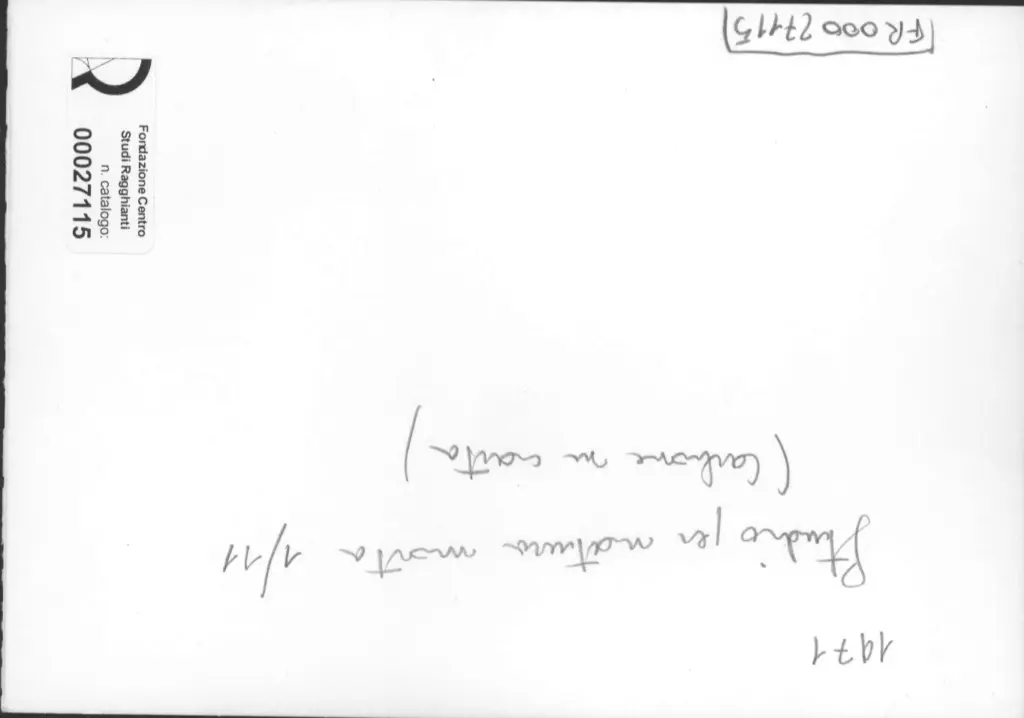 1971
Studio per natura morta 1/11
(Carbone su carta)
FR 000 27115
Fondazione Centro
Studi Ragghianti
n. catalogo:
00027115